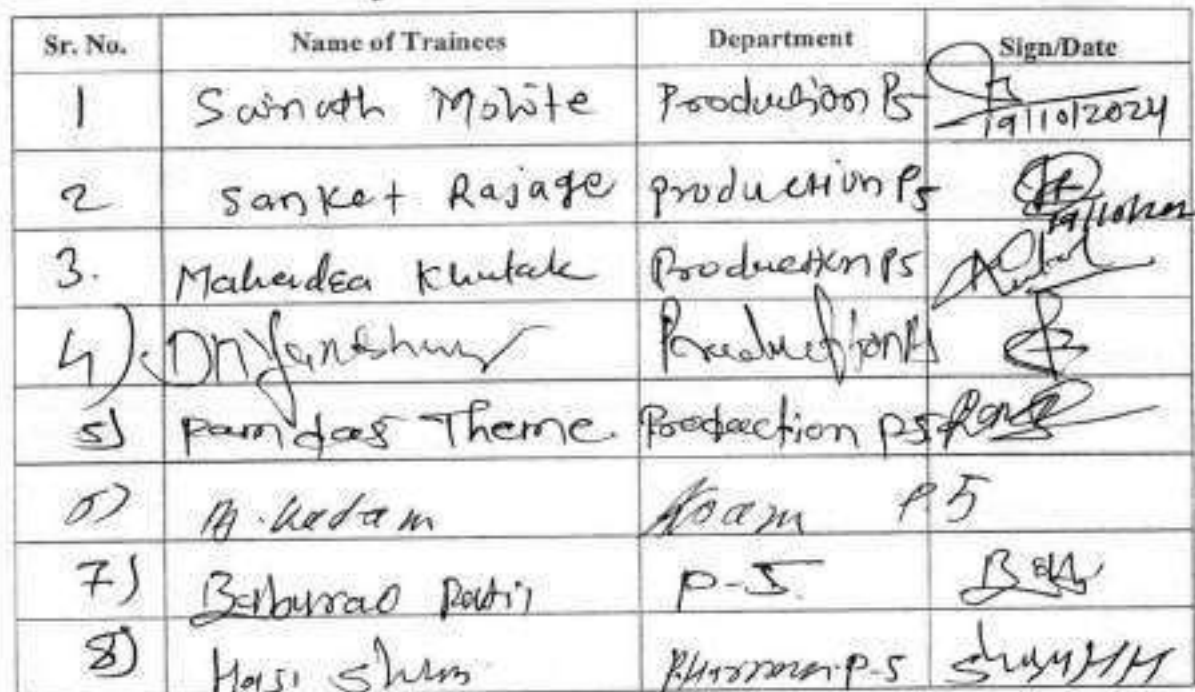 Sr. No. Name of Trainees Department Sign/Date
1 Sainath Mohite Production P5 19/10/2024
2 Sanket Rajage production P5
3. Mahendra Khutale Production P5
4) Dnyaneshwar Production P5
5) Ramdas Theme. Production P5
6) A. Kadam P.5
7) Baburao Patil P-5
8) P-5